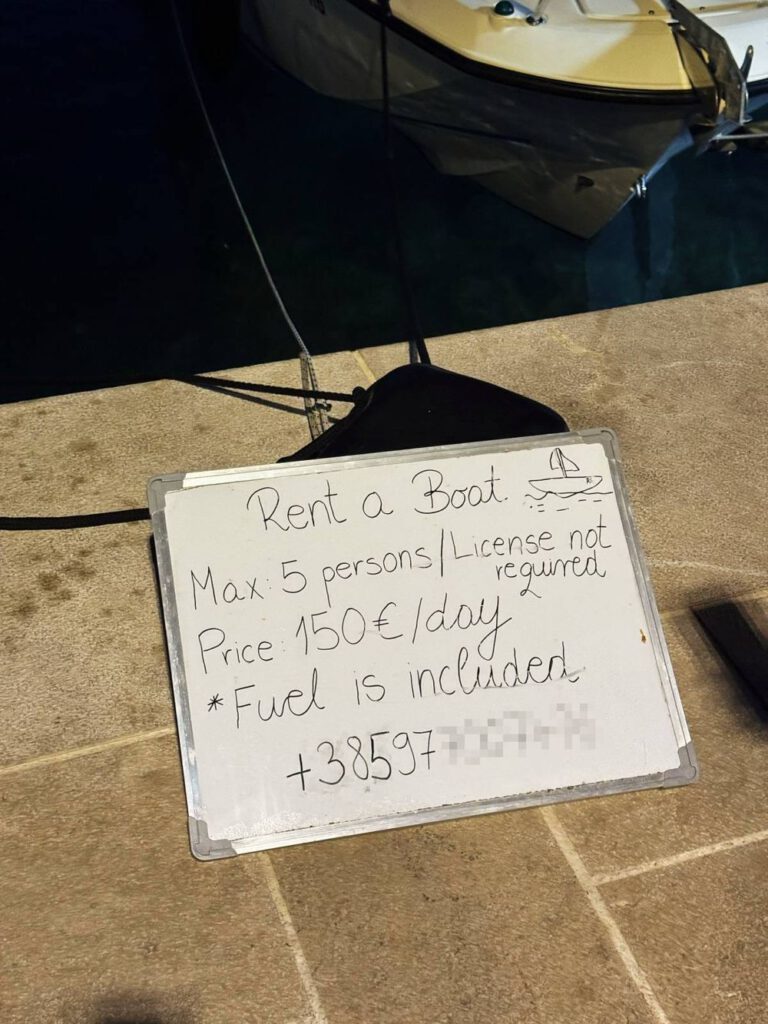 Rent a Boat.
Max: 5 persons/License not
required
Price: 150€/day
*Fuel is included
+38597